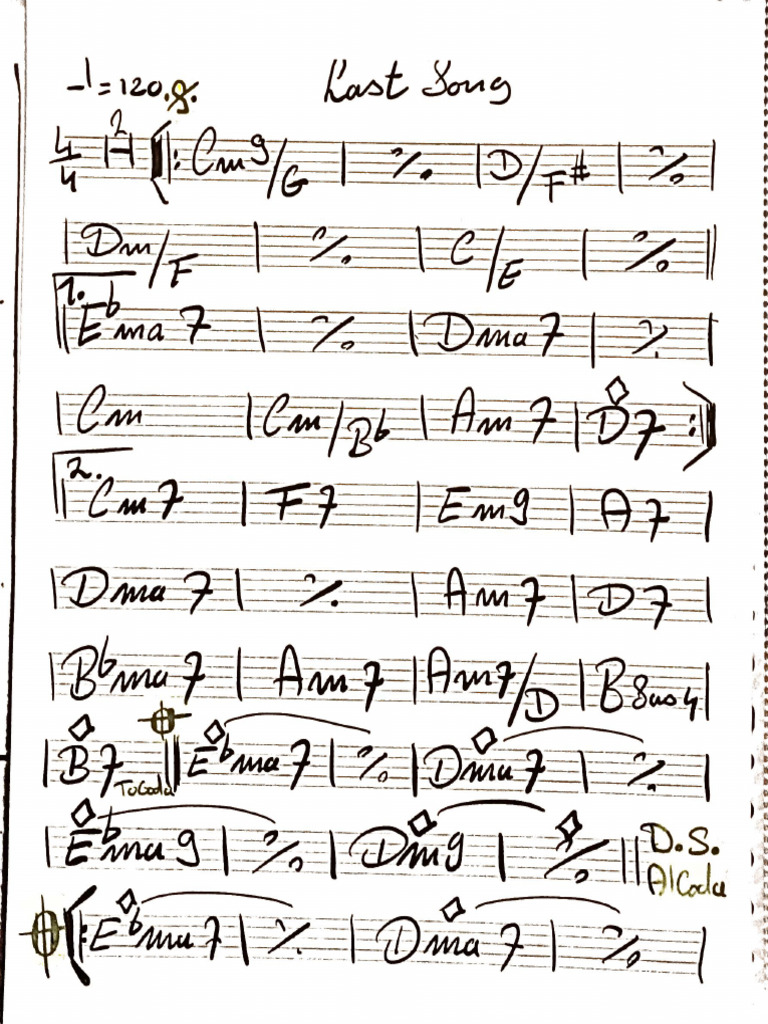 ♩=120 𝄋 Last Song
4/4 2 |: Cm9/G | ٪ | D/F# | ٪ |
| Dm/F | ٪ | C/E | ٪ ||
1. Ebma7 | ٪ | Dma7 | ٪ |
| Cm | Cm/Bb | Am7 | D7 :|
2. Cm7 | F7 | Em9 | A7 |
| Dma7 | ٪ | Am7 | D7 |
| Bbma7 | Am7 | Am7/D | Bsus4 |
| B7 To Coda || Ebma7 | ٪ | Dma7 | ٪ |
| Ebma9 | ٪ | Dm9 | ٪ || D.S. Al Coda
|: Ebma7 | ٪ | Dma7 | ٪ |